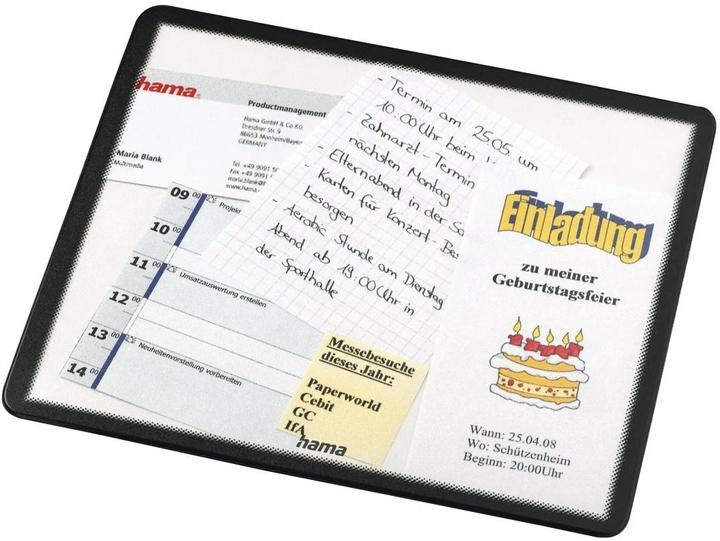 hama
Productmanagement
Hama GmbH & Co KG
Dresdner Str. 9
86653 Monheim/Bayern
GERMANY
Maria Blank
Multimedia
Tel. +49 9091 50
Fax +49 9091
maria.blank@
www.hama.
09 00 Projek
10 00
11 00 Umsatzauswertung erstellen
12 00
13 00 Neuheitenvorstellung vorbereiten
14 00
- Termin am 25.05. um
10.00 Uhr beim
- Zahnarzt-Termin
nächsten Montag
- Elternabend in der
- Karten für Konzert-Bes
besorgen
- Aerobic Stunde am Dienstag
Abend ab 19.00 Uhr in
der Sporthalle
Messebesuche
dieses Jahr:
Paperworld
Cebit
GC
IfA
hama
Einladung
zu meiner
Geburtstagsfeier
Wann: 25.04.08
Wo: Schützenheim
Beginn: 20:00Uhr